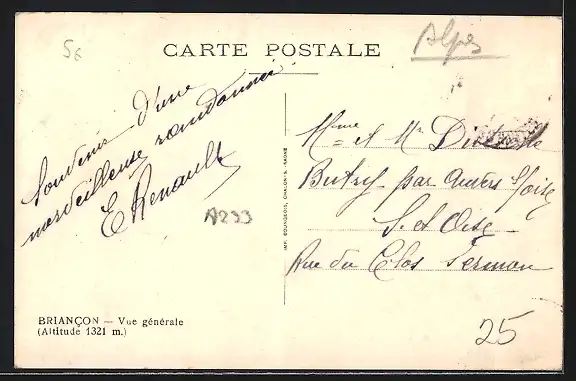 56
CARTE POSTALE
Alpes
Souvenir d'une
merveilleuse randonnée
E Renault
A233
Mme et Mr
Butry par Auvers s/ Oise
S. et Oise
Rue du Clos
IMP. BOURGEOIS, CHALON-S.-SAONE
BRIANÇON — Vue générale
(Altitude 1321 m.)
25